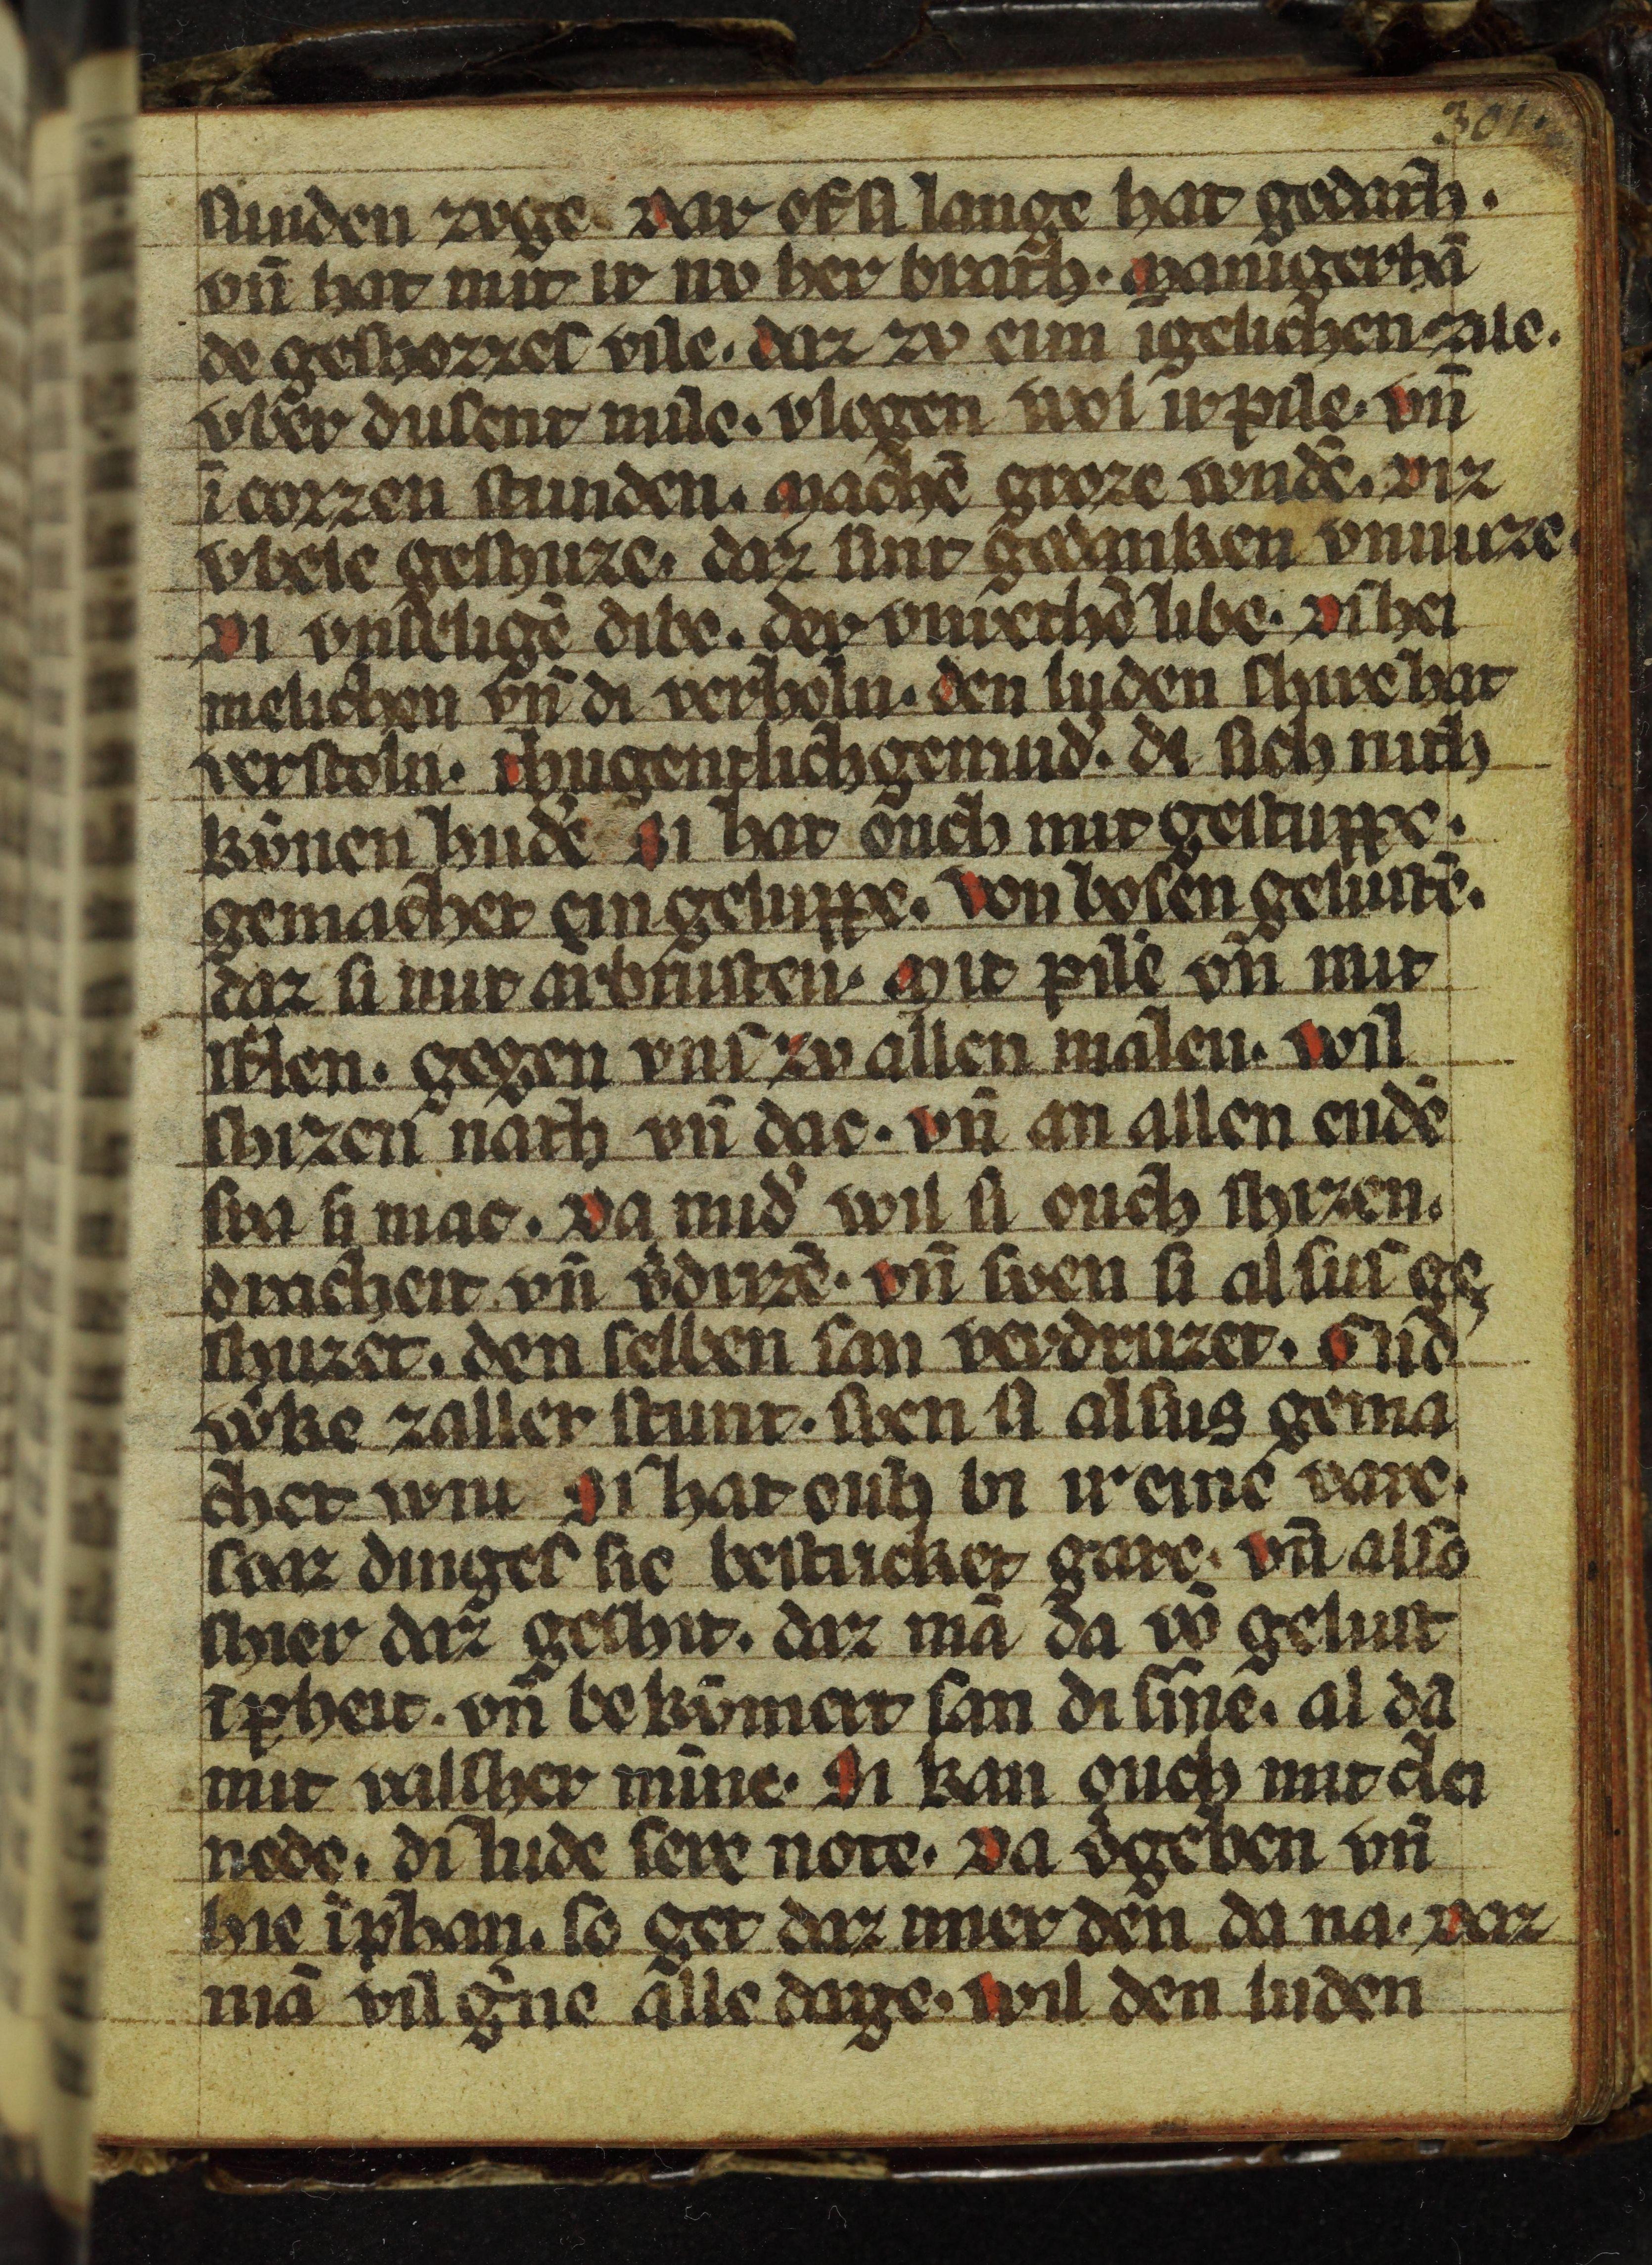 301.
sunden zvge. Dar of si lange hat gedath.
vn̄ hat mit ir nv her brath. Manigerhā
de geshozzes vile. daz zv eim igelichen zile.
vber dusent mile. vlogen wol ir pile. vn̄
ī corzen stunden. Machē groze wndē. Diz
vbele geshuze. daz sint gedanken vnnuze.
Di vnselige̅ dibe. der vnrethē libe. Di hei
melichen vn̄ di verholn. den luden shire hat
verstoln. thugentlich gemud̓. di sich nith
kv̄nen hude̅ Si hat ouch mit gestuppe.
gemachet ein geluppe. von bosen geluste̅.
daz si mit arbrusten. Mit pile̅ vn̄ mit
stʾlen. gegen vns zv allen malen. wil
shizen nath vn̄ dac. vn̄ an allen endē
swa si mac. Da mid̓ wil si ouch shizen.
drucheit vn̄ v̓druzē. vn̄ swen si alsus ge
shuzet. den selben san verdruzet. Gud̓
wʾke zaller stunt. swen si alsus gema
chet wnt Si hat ouh bi ir eine vare.
swaz dinges sie bestricket gare. vn̄ also
shier daz geshit. daz mā da vō gelust
īpheit. vn̄ bekv̄mert san di sīne. al da
mit valsher mīne. Si kan ouch mit clei
nede. di lude sere note. Da v̓geben vn̄
hie īphan. so get daz imer den da na. Daz
mā vil gʾne alle dage. wil den luden